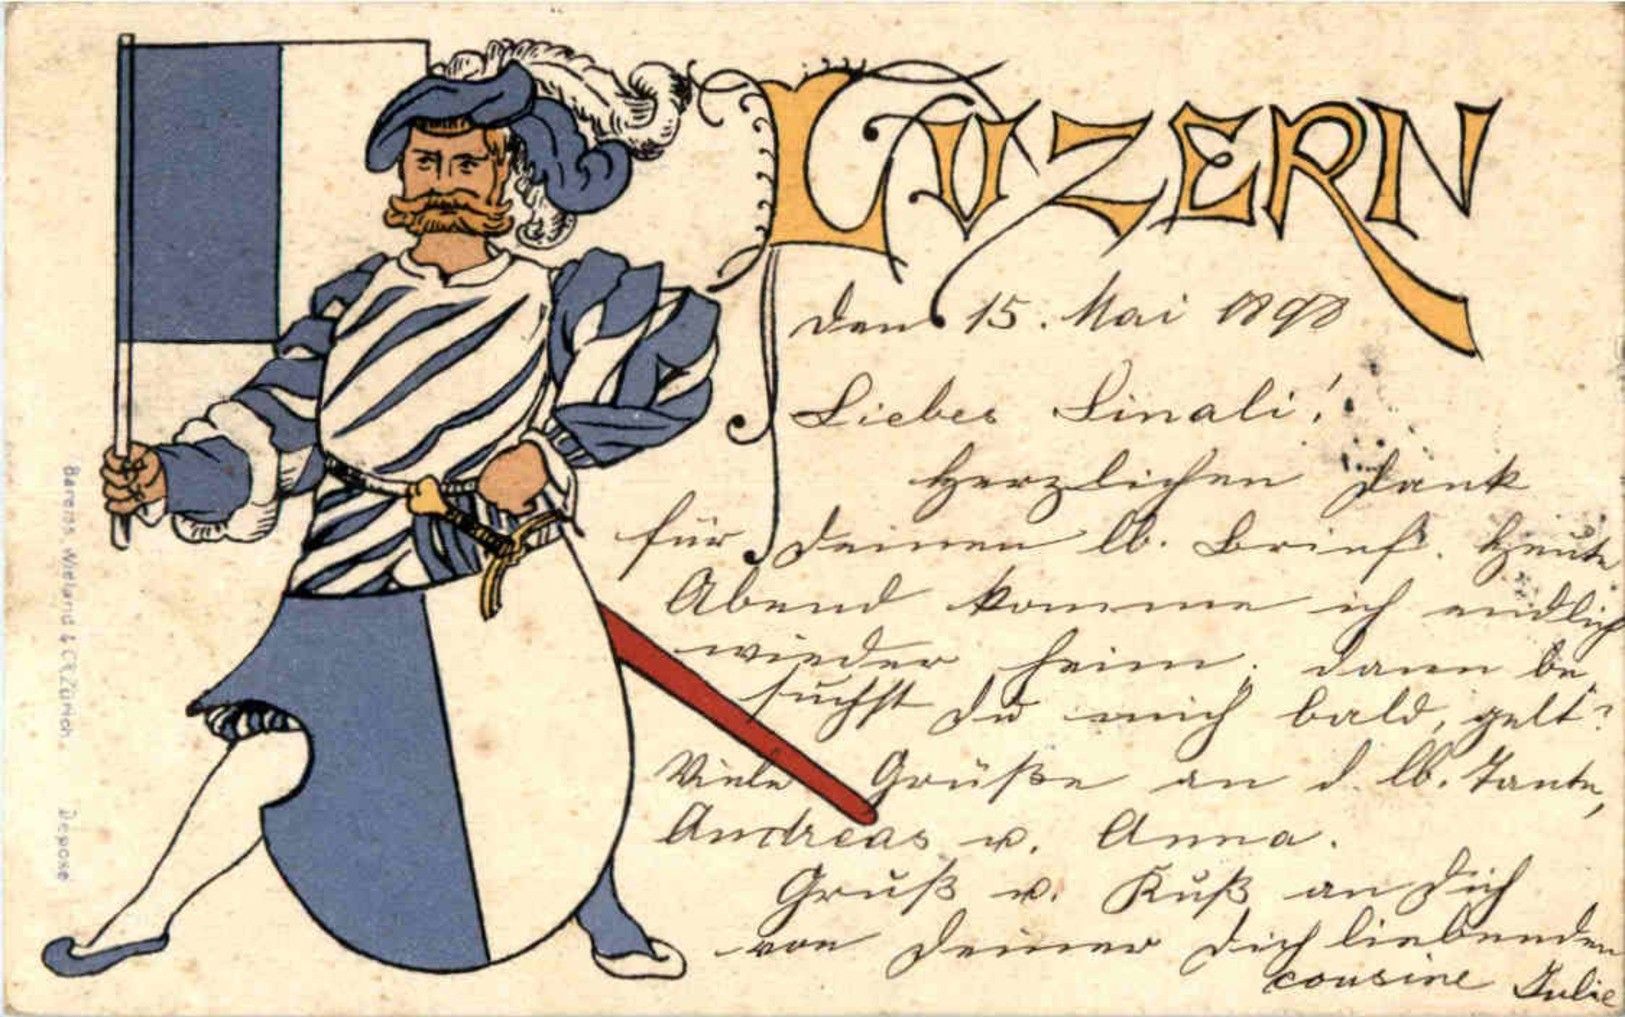 LUZERN
den 15. Mai 1898
Liebes Linali!
Herzlichen Dank
für Deinen lb. Brief. Heute
Abend komme ich endlich
wieder heim; dann be„
suchst Du mich bald, gelt?
Viele Grüße an d. lb. Tante,
Andreas u. Anna.
Gruß u. Kuß an Dich
von Deiner Dich liebenden
cousine Julie
Bareiss, Wieland & Cie Zürich. Déposé